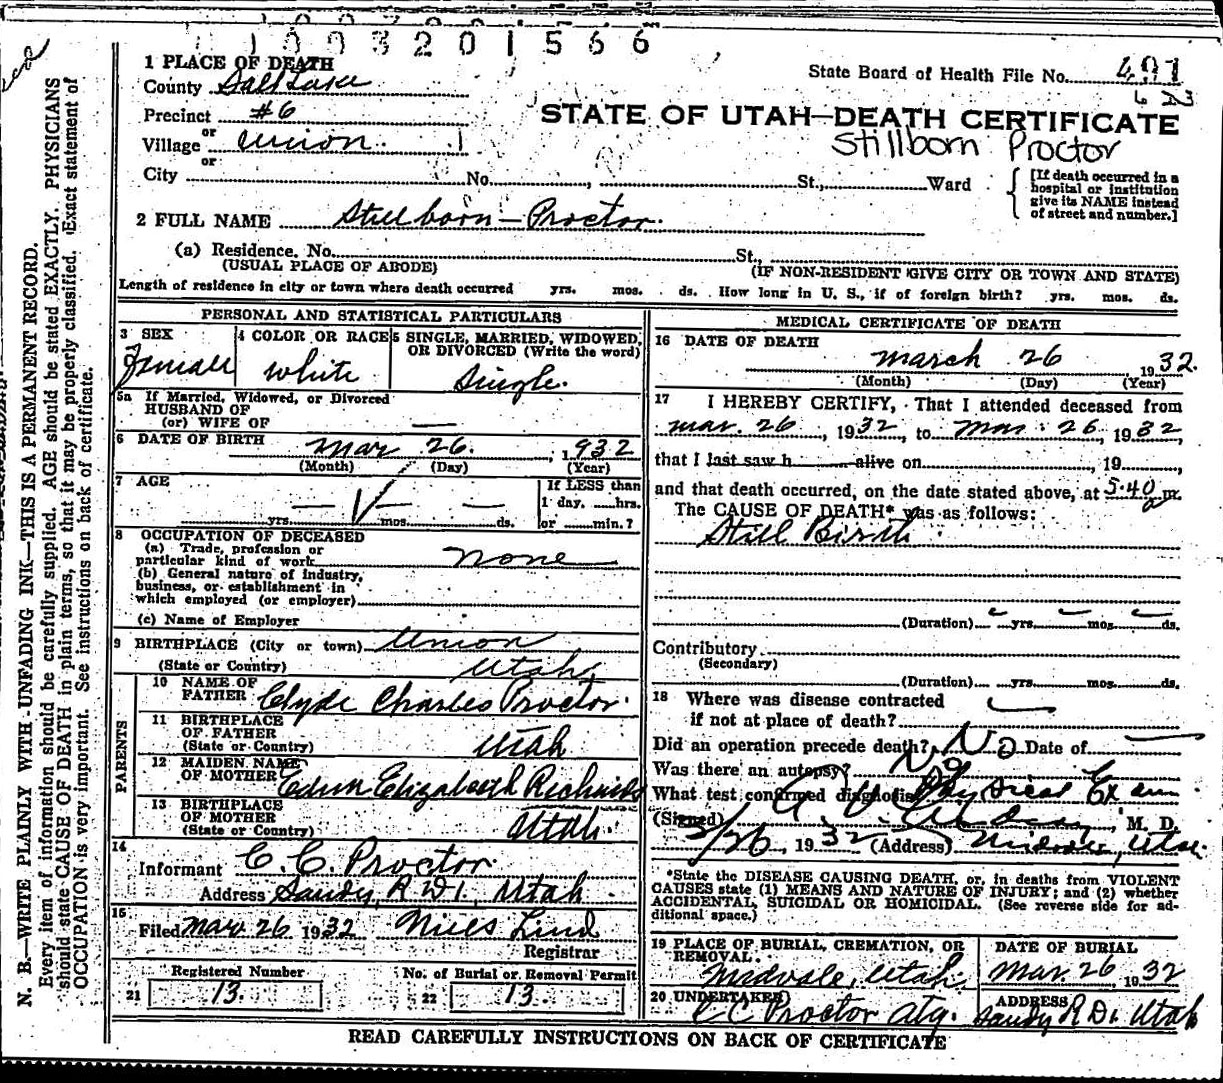 1003201566
State Board of Health File No. 497
1 PLACE OF DEATH
County Salt Lake
Precinct #6
or
Village Union
or
City No. , St., Ward
STATE OF UTAH—DEATH CERTIFICATE
Stillborn Proctor
[If death occurred in a
hospital or institution
give its NAME instead
of street and number.]
2 FULL NAME Stillborn - Proctor.
(a) Residence. No. St.,
(USUAL PLACE OF ABODE) (IF NON-RESIDENT GIVE CITY OR TOWN AND STATE)
Length of residence in city or town where death occurred yrs. mos. ds. How long in U. S., if of foreign birth? yrs. mos. ds.
PERSONAL AND STATISTICAL PARTICULARS
3 SEX
Female
4 COLOR OR RACE
white
5 SINGLE, MARRIED, WIDOWED,
OR DIVORCED (Write the word)
Single.
5a If Married, Widowed, or Divorced
HUSBAND OF
(or) WIFE OF —
6 DATE OF BIRTH Mar 26. 1932
(Month) (Day) (Year)
7 AGE
yrs. mos. ds.
If LESS than
1 day, hrs.
or min.?
8 OCCUPATION OF DECEASED
(a) Trade, profession or
particular kind of work none
(b) General nature of industry,
business, or establishment in
which employed (or employer)
(c) Name of Employer
9 BIRTHPLACE (City or town) Union
(State or Country) Utah
PARENTS
10 NAME OF
FATHER Clyde Charles Proctor.
11 BIRTHPLACE
OF FATHER
(State or Country) Utah
12 MAIDEN NAME
OF MOTHER Edna Elizabeth Richards
13 BIRTHPLACE
OF MOTHER
(State or Country) Utah.
14
Informant C. C. Proctor.
Address Sandy, R.D.1, Utah
15
Filed Mar 26 1932 Niels Lind
Registrar
Registered Number
21 13.
No. of Burial or Removal Permit
22 13.
MEDICAL CERTIFICATE OF DEATH
16 DATE OF DEATH
March 26, 1932.
(Month) (Day) (Year)
17 I HEREBY CERTIFY, That I attended deceased from
Mar. 26, 1932, to Mar. 26, 1932,
that I last saw h alive on , 19 ,
and that death occurred, on the date stated above, at 5:40 a m.
The CAUSE OF DEATH* was as follows:
Still Birth.
(Duration) yrs. mos. ds.
Contributory
(Secondary)
(Duration) yrs. mos. ds.
18 Where was disease contracted
if not at place of death?
Did an operation precede death? No Date of
Was there an autopsy? No
What test confirmed diagnosis Physical Exam.
(Signed) , M. D.
3/26, 1932 (Address) Midvale, Utah.
*State the DISEASE CAUSING DEATH, or, in deaths from VIOLENT
CAUSES state (1) MEANS AND NATURE OF INJURY; and (2) whether
ACCIDENTAL, SUICIDAL OR HOMICIDAL. (See reverse side for ad-
ditional space.)
19 PLACE OF BURIAL, CREMATION, OR
REMOVAL.
Midvale, Utah.
DATE OF BURIAL
Mar. 26, 1932
20 UNDERTAKER
C C Proctor Atg.
ADDRESS
Sandy R.D.1 Utah
READ CAREFULLY INSTRUCTIONS ON BACK OF CERTIFICATE
N. B.—WRITE PLAINLY WITH UNFADING INK—THIS IS A PERMANENT RECORD.
Every item of information should be carefully supplied. AGE should be stated EXACTLY. PHYSICIANS
should state CAUSE OF DEATH in plain terms, so that it may be properly classified. Exact statement of
OCCUPATION is very important. See instructions on back of certificate.